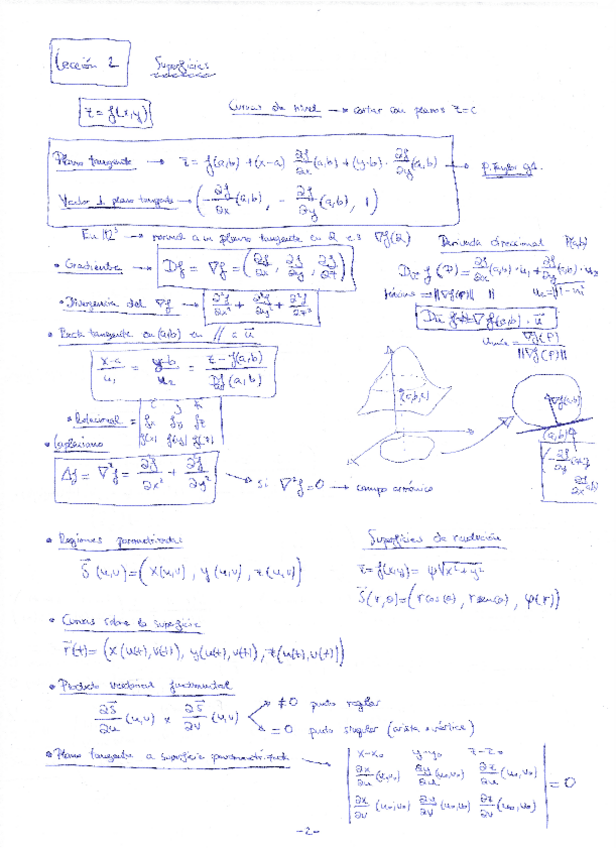 Lección 2 Superficies
z = f(x,y) Curvas de nivel → cortar con planos z=c
Plano tangente → z = f(a,b) + (x-a) ∂f/∂x (a,b) + (y-b) · ∂f/∂y (a,b) → P. Taylor g1.
Vector ⊥ plano tangente → (-∂f/∂x (a,b), -∂f/∂y (a,b), 1)
En ℝ³ → normal a un plano tangente en a es ∇f(a)
Derivada direccional P(a,b)
• Gradiente → Df = ∇f = (∂f/∂x, ∂f/∂y, ∂f/∂z)
= ∂f/∂x (a,b) · u₁ + ∂f/∂y (a,b) · u₂
• Divergencia del ∇f → ∂²f/∂x² + ∂²f/∂y² + ∂²f/∂z²
∇f(a,b) · u
• Recta tangente en (a,b) en // a u
= ∇f(P)/||∇f(P)||
(x-a)/u₁ = (y-b)/u₂ = (z-f(a,b))/(Df(a,b))
• Rotacional =
• Laplaciano
Δf = ∇²f = ∂²f/∂x² + ∂²f/∂y² → Si ∇²f = 0 → campo armónico
(a,b)
• Regiones parametrizadas
S(u,v) = (x(u,v), y(u,v), z(u,v))
Superficies de revolución
z = f(x,y) = φ√x²+y²
S(r,θ) = (r cos(θ), r sen(θ), φ(r))
• Curvas sobre la superficie
r(t) = (x(u(t),v(t)), y(u(t),v(t)), z(u(t),v(t)))
• Producto vectorial fundamental
∂S/∂u (u,v) x ∂S/∂v (u,v)
≠0 punto regular
=0 punto singular (arista o vértice)
• Plano tangente a superficie parametrizada →
x-x₀ y-y₀ z-z₀
∂x/∂u (u₀,v₀) ∂y/∂u (u₀,v₀) ∂z/∂u (u₀,v₀) = 0
∂x/∂v (u₀,v₀) ∂y/∂v (u₀,v₀) ∂z/∂v (u₀,v₀)
-2-